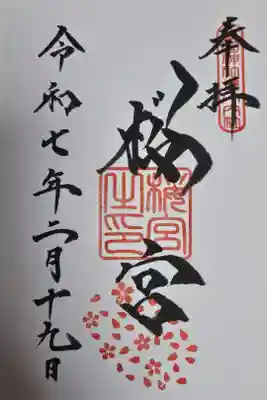 奉拝
桜宮
令和七年二月十九日